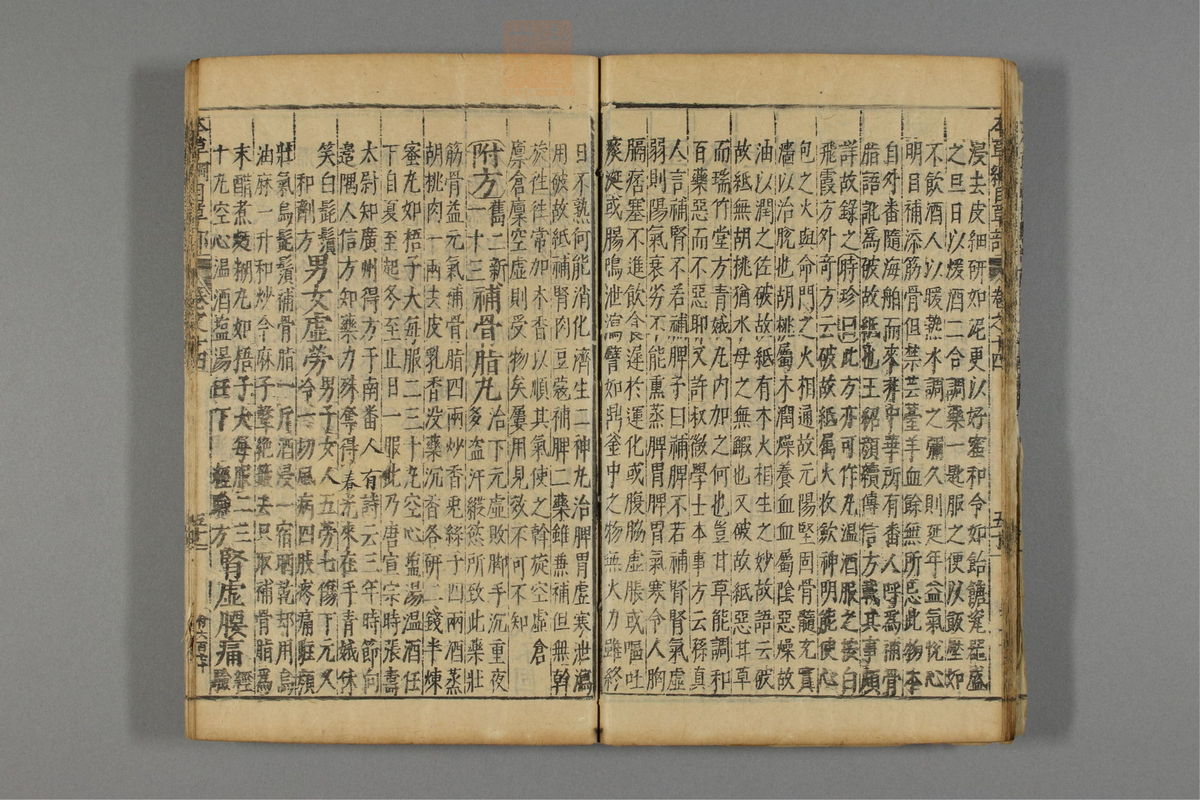 浸去皮細研如泥更以好蜜和令如飴餹瓷器盛
之旦日以煖酒二合調藥一匙服之便以飯壓如
不飲酒人以暖熟水調之彌久則延年益氣悅心
明目補添筋骨但禁芸薹羊血餘無所忌此物本
自外番隨海舶而來非中華所有番人呼為補骨
脂語訛為破故紙也王紹顏續傳信方載其事頗
詳故錄之時珍曰此方亦可作丸溫酒服之按白
飛霞方外奇方云破故紙屬火收斂神明能使心
包之火與命門之火相通故元陽堅固骨髓充實
濇以治脫也胡桃屬木潤燥養血血屬陰惡燥故
油以潤之佐破故紙有木火相生之妙故語云破
故紙無胡桃猶水母之無鰕也又破故紙惡甘草
而瑞竹堂方青娥丸內加之何也豈甘草能調和
百藥惡而不惡耶又許叔微學士本事方云孫真
人言補腎不若補脾予曰補脾不若補腎腎氣虛
弱則陽氣衰劣不能熏蒸脾胃脾胃氣寒令人胸
膈痞塞不進飲食遲於運化或腹脇虛脹或嘔吐
痰涎或腸鳴泄瀉譬如鼎釜中之物無火力雖終
日不熟何能消化濟生二神丸治脾胃虛寒泄瀉
用破故紙補腎肉豆蔻補脾二藥雖兼補但無斡
旋往往常加木香以順其氣使之斡旋空虛倉
廩倉廩空虛則受物矣屢用見效不可不知
附方舊二新一十三補骨脂丸治下元虛敗腳手沉重夜
多盜汗縱慾所致此藥壯
筋骨益元氣補骨脂四兩炒香兎絲子四兩酒蒸
胡桃肉一兩去皮乳香沒藥沉香各研二錢半煉
蜜丸如梧子大每服二三十丸空心鹽湯溫酒任
下自夏至起冬至止日一服此乃唐宣宗時張壽
太尉知廣州得方于南番人有詩云三年時節向
邊隅人信方知藥力殊奪得春光來在手青娥休
笑白髭鬚
和劑方男女虛勞男子女人五勞七傷下元久
冷一切風病四肢疼痛駐顏
壯氣烏髭鬚補骨脂一斤酒浸一宿晒乾却用烏
油麻一升和炒令麻子聲絕簸去只取補骨脂為
末醋煮麪糊丸如梧子大每服二三
十丸空心溫酒鹽湯任下經驗方腎虛腰痛經
驗